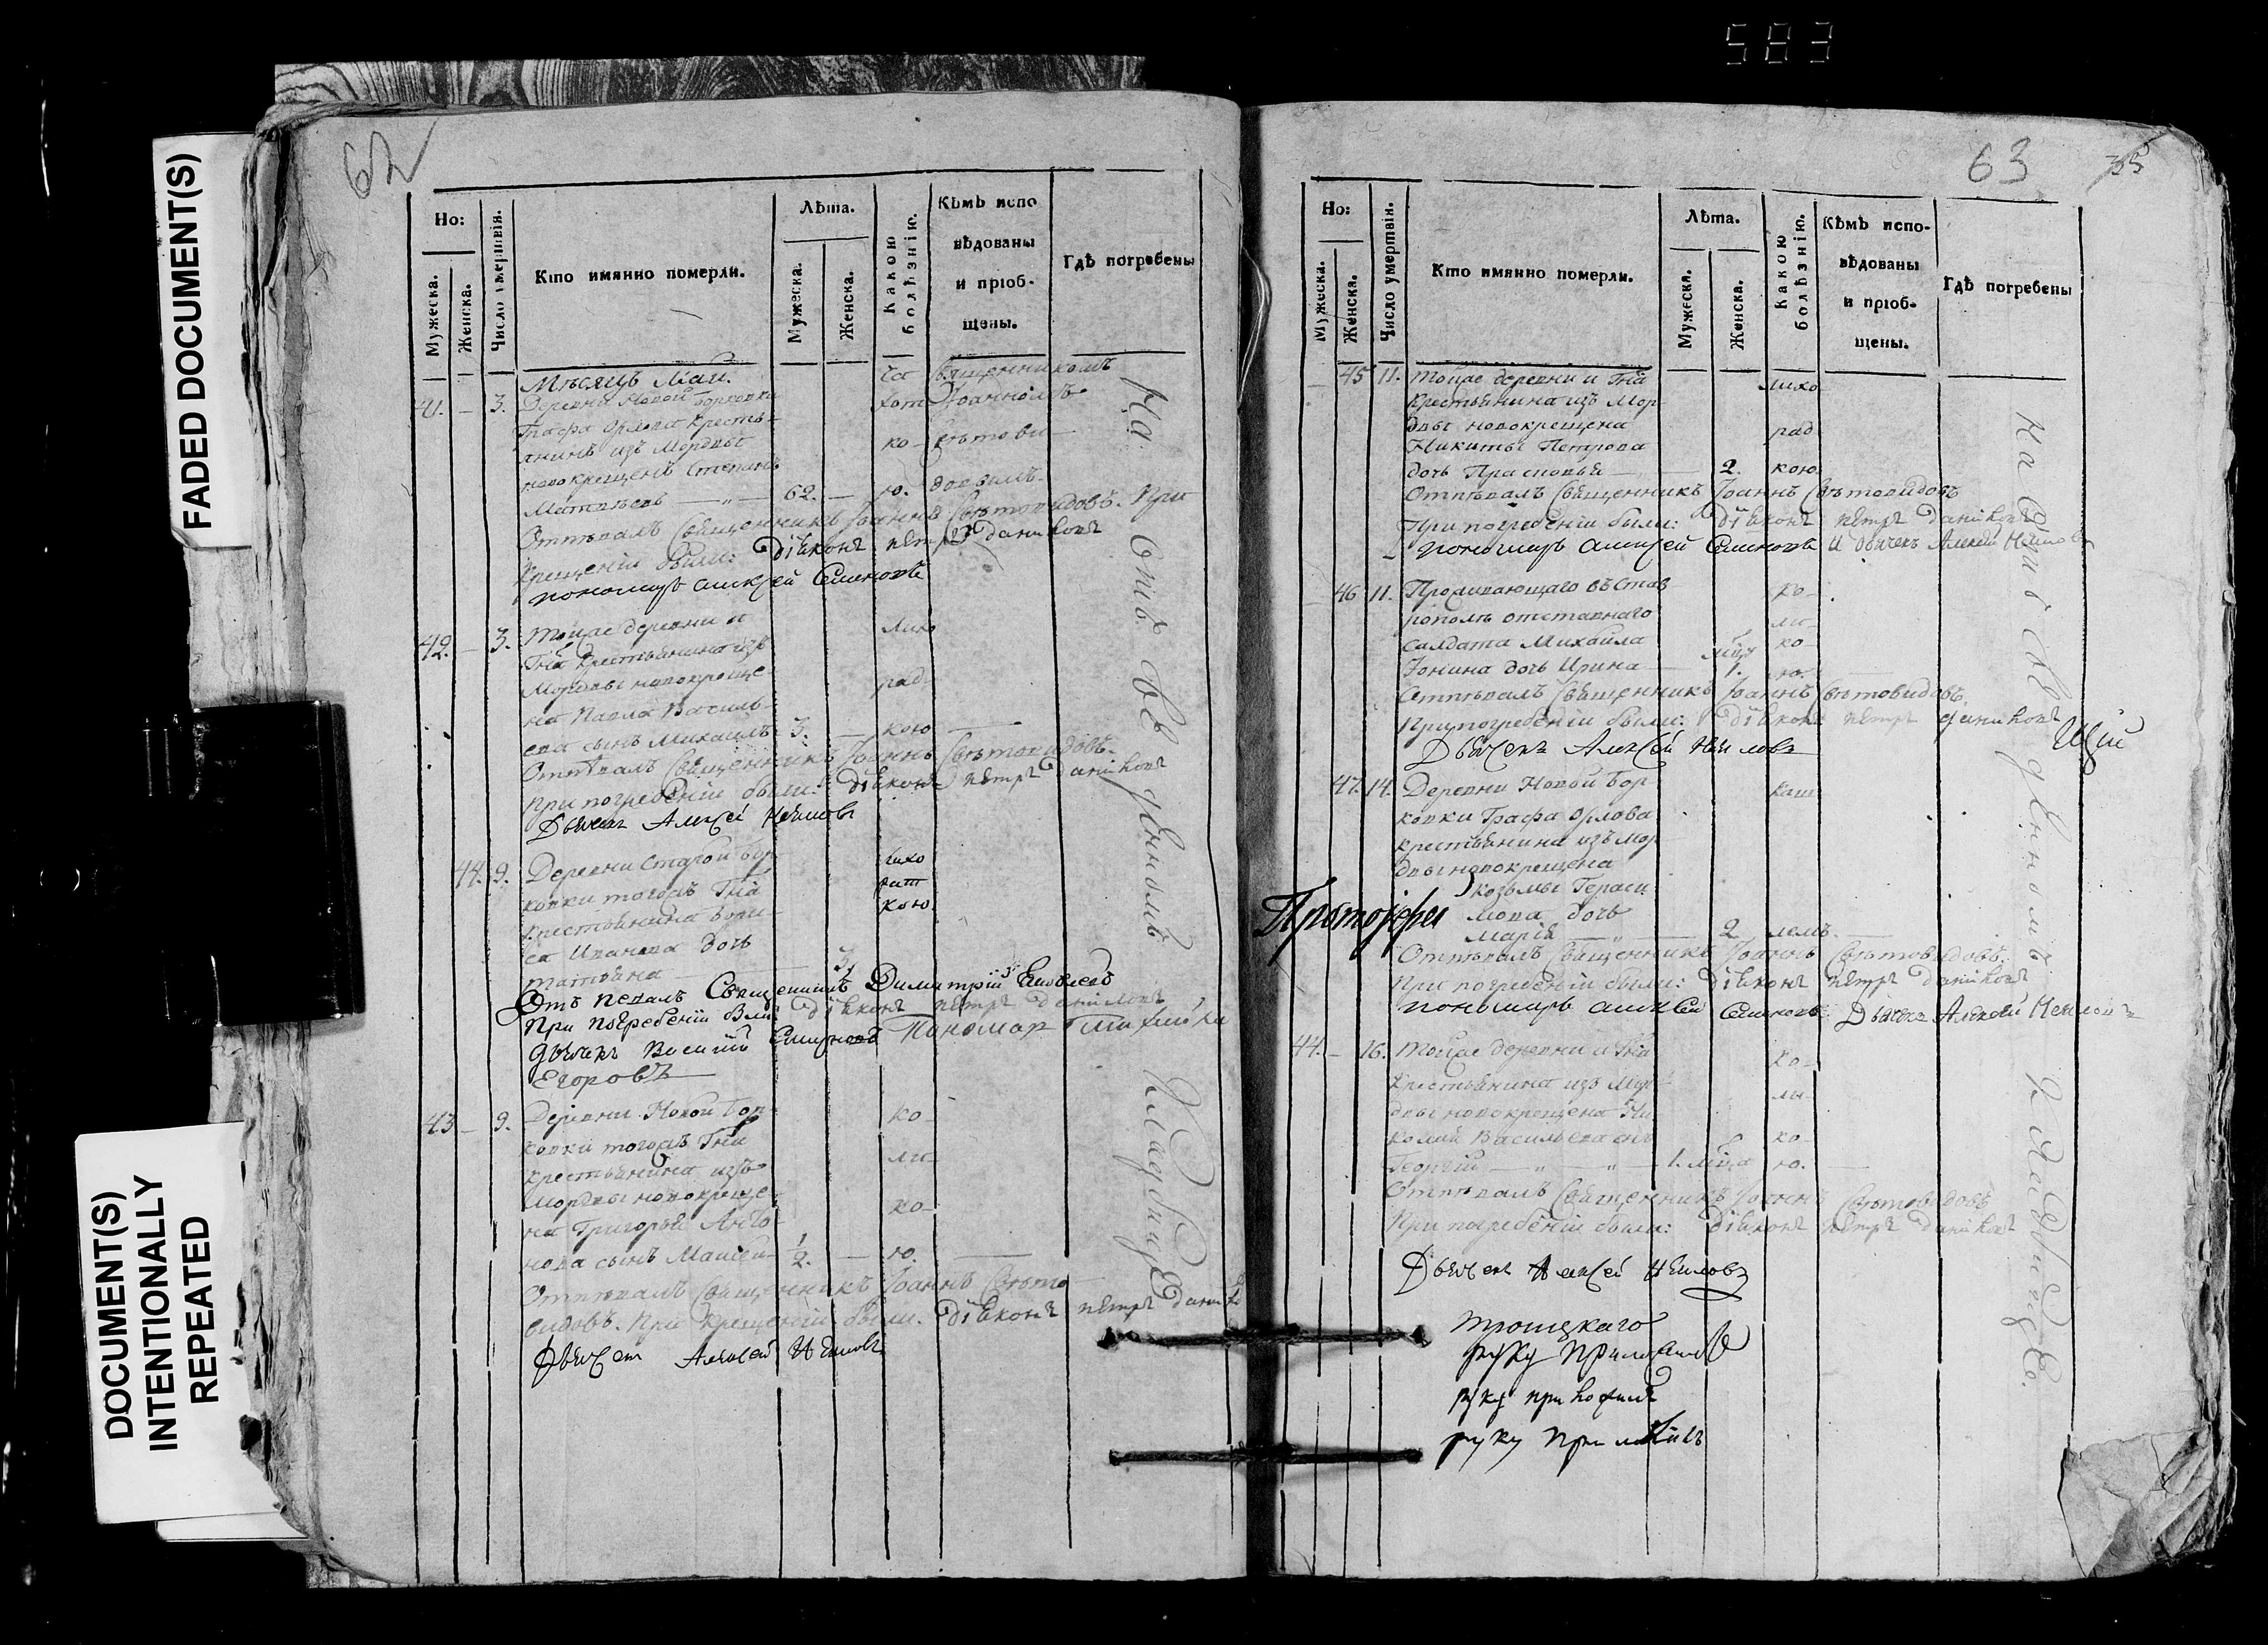 583
FADED DOCUMENT(S)
DOCUMENT(S)
INTENTIONALLY
REPEATED
62
Но:
Мужеска.
Женска.
Число умертвія.
Кто имянно померли.
Лѣта.
Мужеска.
Женска.
Какою
болѣзнію.
Кѣмъ испо
вѣдованы
и пріоб-
щены.
Гдѣ погребены
Мѣсяцъ Май.
41. 3. Деревни Новой Борковки
Графа Орлова кресть-
янинъ изъ Мордвы
новокрещенъ Степанъ
Матвѣевъ 62.
ча
хот
ко-
ю.
Священникомъ
Іоанномъ
Свѣтови-
довымъ.
Отпѣвалъ Священникъ Іоаннъ Свѣтовидовъ. При
крещеніи были: діаконъ петръ даниловъ
пономарь алиѯей Семеновъ
42. 3. Тойже деревни и
Гна крестьянина изъ
Мордвы новокреще-
на Павла Василь-
ева сынъ Михаилъ 3.
лихо
рад-
кою
Отпѣвалъ Священникъ Іоаннъ Свѣтовидовъ.
При погребеніи были: діаконъ петръ даниловъ
Дьячекъ Алеѯей Неиловъ
44. 9. Деревни Старой Бор
ковки тогожъ Гна
крестьянина Бори-
са Иванова дочь
татьяна 3
лихо
рат
кою
Отъ певалъ Священникъ Димитрій
При погребеніи были діаконъ петръ даниловъ
дьячекъ Василій Пономар
Егоровъ
43 9. Деревни Новой Бор-
ковки тогожъ Гна
крестьянина изъ
Мордвы новокреще-
на Григорья Анто-
нова сынъ Маисей 1/2.
ко-
ли-
ко-
ю.
Отпѣвалъ Священникъ Іоаннъ Свѣто-
видовъ. При крещеніи были. діаконъ петръ
Дьячекъ Алеѯей Неиловъ
На Онѣ
кладбищѣ
63
35
Но:
Мужеска.
Женска.
Число умертвія.
Кто имянно померли.
Лѣта.
Мужеска.
Женска.
Какою
болѣзнію.
Кѣмъ испо-
вѣдованы
и пріоб-
щены.
Гдѣ погребены
45 11. Тойже деревни и Гна
крестьянина изъ Мор-
двы новокрещена
Никиты Петрова
дочь Прасковья 2.
лихо
рад
кою
Отпѣвалъ Священникъ Іоаннъ Свѣтовидовъ
При погребеніи были: діаконъ петръ даниловъ
пономарь алиѯей Семеновъ и дьячекъ Алеѯей Неиловъ
46 11. Проживающаго въ Став
рополѣ отставнаго
салдата Михайла
Іонина дочь Ирина 1.
ко-
ли-
ко-
ю.
Отпѣвалъ Священникъ Іоаннъ Свѣтовидовъ.
При погребеніи были: діаконъ петръ даниловъ
Дьячекъ Алеѯей Неиловъ
47. 14. Деревни Новой Бор
ковки Графа Орлова
крестьянина изъ Мор
двы новокрещена
козьмы Гераси
мова дочь
Марія 2
каш
лемъ.
Отпѣвалъ Священникъ Іоаннъ Свѣтовидовъ.
При погребеніи были: діаконъ петръ даниловъ
пономарь алиѯей Семеновъ Дьячекъ Алеѯей Неиловъ
44. 16. Тойже деревни и Гна
крестьянина изъ Мор
двы новокрещена Ни
колая Васильева сынъ
Георгій 1. мца
ко-
ли-
ко-
ю.
Отпѣвалъ Священникъ Іоаннъ Свѣтовидовъ
При погребеніи были: діаконъ петръ даниловъ
Дьячекъ Алеѯей Неиловъ
троицкаго
руку приложилъ
руку приложилъ
руку приложилъ
кладбищѣ.